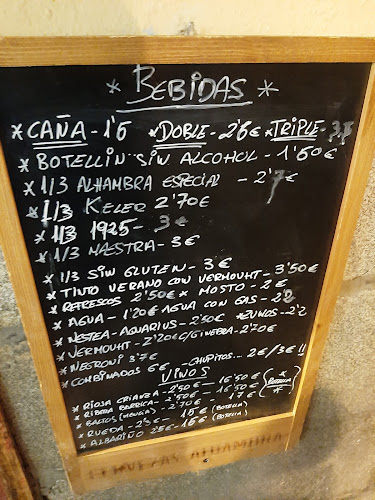 * BEBIDAS *
* CAÑA - 1'6 * DOBLE - 2'6€ * TRIPLE -
* BOTELLIN SIN ALCOHOL - 1'60€
* 1/3 ALHAMBRA ESPECIAL - 2'7€
* 1/3 KELER 2'70€
* 1/3 1925 - 3€
* 1/3 MAESTRA - 3€
* 1/3 SIN GLUTEN - 3€
* TINTO VERANO CON VERMOUHT - 3'50€
* REFRESCOS 2'50€ * MOSTO - 2€
* AGUA - 1'20€ AGUA CON GAS - 2'2
* NESTEA - AQUARIUS - 2'50€ * ZUMOS - 2'2
* VERMOUHT - 2'20€ C/GINEBRA - 2'70€
* NEGRONI 3'7€
* COMBINADOS 6€ - CHUPITOS... 2€/3€!!
VINOS
* RIOJA CRIANZA - 2'50€ - 16'50€
* RIBERA BARRICA - 2'50€ - 16'50€ (BOTELLA)
* BALTOS (MENCIA) - 2'70€ - 17€
* RUEDA - 15€ (BOTELLA)
* ALBARIÑO 16€ (BOTELLA)
CERVEZAS ALHAMBRA